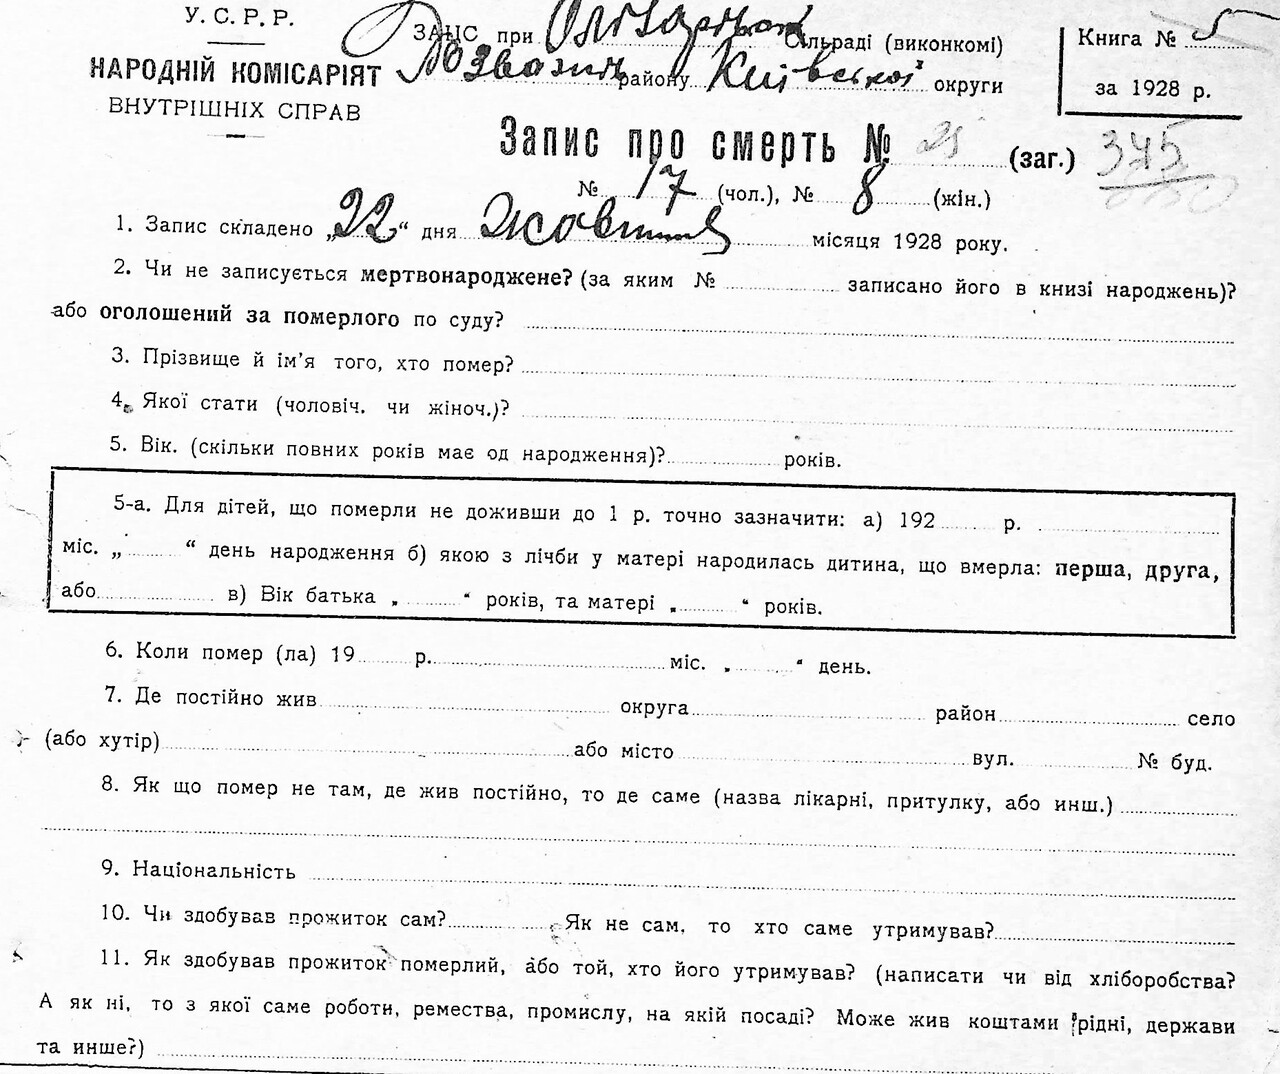 У. С. Р. Р.
НАРОДНІЙ КОМІСАРІЯТ
ВНУТРІШНІХ СПРАВ
ЗАПС при Сільраді (виконкомі)
Розважів району Київської округи
Книга № 5
за 1928 р.
Запис про смерть № 25 (заг.) 345
№ 17 (чол.), № 8 (жін.)
1. Запис складено „22“ дня Жовтня місяця 1928 року.
2. Чи не записується мертвонароджене? (за яким № записано його в книзі народжень)?
або оголошений за померлого по суду?
3. Прізвище й ім’я того, хто помер?
4. Якої стати (чоловіч. чи жіноч.)?
5. Вік. (скільки повних років має од народження)? років.
5-а. Для дітей, що померли не доживши до 1 р. точно зазначити: а) 192 р.
міс. „ “ день народження б) якою з лічби у матері народилась дитина, що вмерла: перша, друга,
або в) Вік батька „ “ років, та матері „ “ років.
6. Коли помер (ла) 19 р. міс. „ “ день.
7. Де постійно жив округа район село
(або хутір) або місто вул. № буд.
8. Як що помер не там, де жив постійно, то де саме (назва лікарні, притулку, або инш.)
9. Національність
10. Чи здобував прожиток сам? Як не сам, то хто саме утримував?
11. Як здобував прожиток померлий, або той, хто його утримував? (написати чи від хліборобства?
А як ні, то з якої саме роботи, ремества, промислу, на якій посаді? Може жив коштами рідні, держави
та инше?)